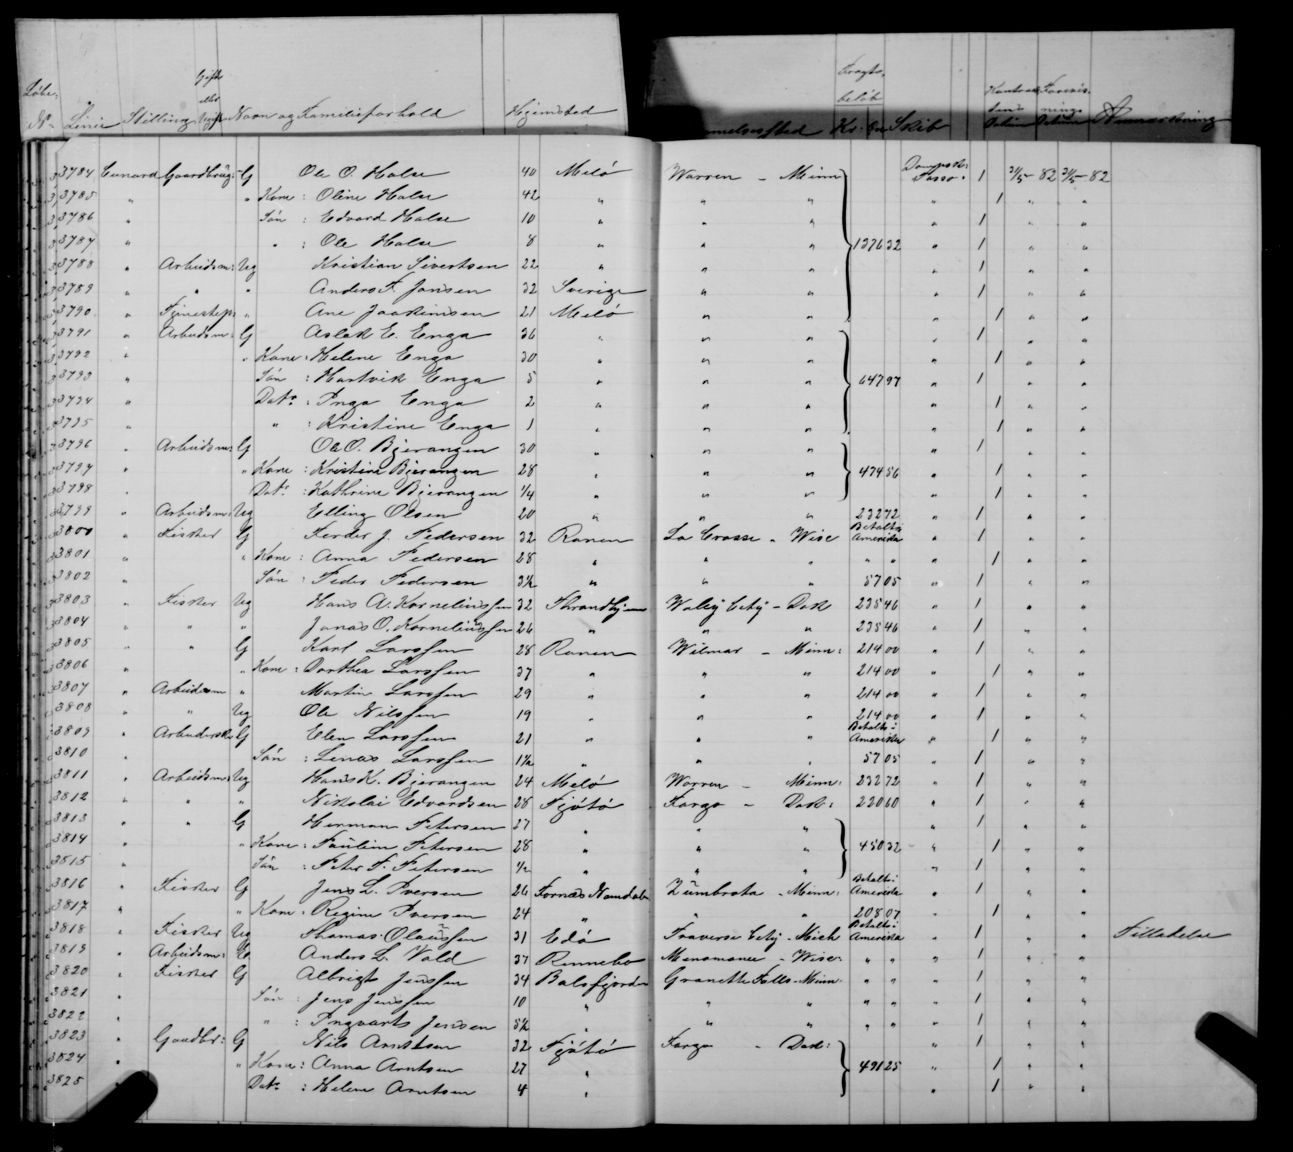 Løbe N. Linie Stilling Gift eller Ugift Navn og Familieforhold Hjemsted Kr. Øre Skib Anmærkning
3784 Cunard G Ole O. Halse 40 Melø Warren - Minn Tasso 1 31/5 - 82 31/5 - 82
3785 " " Kone : Oline Halse 42 " " " " 1 " "
3786 " Søn : Edvard Halse 10 " " " " 1 " "
3787 " " : Ole Halse 8 " " " 137632 " 1 " "
3788 " Arbeidsm: Ug Kristian Sivertsen 22 " " " " 1 " "
3789 " " " Anders F. Jansen 32 Sverige " " " 1 " "
3790 " " Ane Joakimsen 21 Melø " " " 1 " "
3791 " Arbeidsm: G Aslak E. Enga 36 " " " " 1 " "
3792 " " Kone : Helene Enga 30 " " " " 1 " "
3793 " Søn : Hartvik Enga 5 " " " 64797 " 1 " "
3794 " Datr : Inga Enga 2 " " " " 1 " "
3795 " " : Kristine Enga 1 " " " " 1 " "
3796 " Arbeidsm: G Ole O. Bjerangen 30 " " " " 1 " "
3797 " " Kone : Kristine Bjerangen 28 " " " 47456 " 1 " "
3798 " Datr : Kathrine Bjerangen 1/4 " " " " 1 " "
3799 " Arbeidsm: Ug Elling Olsen 20 " " " 23272 " 1 " "
3800 " Fisker G J. Pedersen 32 Ranen La Crosse - Wisc Betalt i Amerika " 1 " "
3801 " " Kone : Anna Pedersen 28 " " " " " " 1 " "
3802 " Søn : Peder Pedersen 3½ " " " 5705 " 1 " "
3803 " Fisker Ug Hans A. Korneliussen 32 - Dak 23546 " 1 " "
3804 " " " Jonas O. Korneliussen 26 " " " 23546 " 1 " "
3805 " " G Karl Larssen 28 Ranen Wilmar - Minn: 21400 " 1 " "
3806 " " Kone : Dorthea Larssen 37 " " " 21400 " 1 " "
3807 " Arbeidsm " Martin Larssen 29 " " " 21400 " 1 " "
3808 " " Ug Ole Nilssen 19 " " " 21400 " 1 " "
3809 " G Elen Larssen 21 " " " Betalt i Amerika " 1 " "
3810 " Søn : Larssen 1½ " " " 5705 " 1 " "
3811 " Arbeidsm: Ug Hans K. Bjerangen 24 Melø Warren - Minn: 23272 " 1 " "
3812 " " " Nikolai Edvardsen 28 Tjøtø Fargo - Dak: 22060 " 1 " "
3813 " " G Herman Petersen 27 " " " " 1 " "
3814 " " Kone : Pauline Petersen 28 " " " 45032 " 1 " "
3815 " Søn : Peter P. Petersen ½ " " " " 1 " "
3816 " Fisker G Jens L. Iversen 26 Zumbrota - Minn: Betalt i Amerika " 1 " "
3817 " " Kone : Regine Iversen 24 " " " 20807 " 1 " "
3818 " Fisker Ug Thomas Olaussen 31 Edø Traverse City - Mich Betalt i Amerika " 1 " " Tilladelse
3819 " Arbeidsm: Anders L. Vold 37 Rennebo Menomonee - Wisc: " " " 1 " "
3820 " Fisker G Albrigt Jenssen 34 Balsfjorden Granette Falls - Minn " " " 1 " "
3821 " Søn : Jens Jenssen 10 " " " " " " 1 " "
3822 " " : Ingvarts Jensen 5½ " " " " " " 1 " "
3823 " Gaardbr: G Nils Arntsen 32 Tjøtø Fargo - Dak: " 1 " "
3824 " " Kone : Anna Arntsen 27 " 49125 " 1 " "
3825 " Datr : Helene Arntsen 4 " " 1 " "